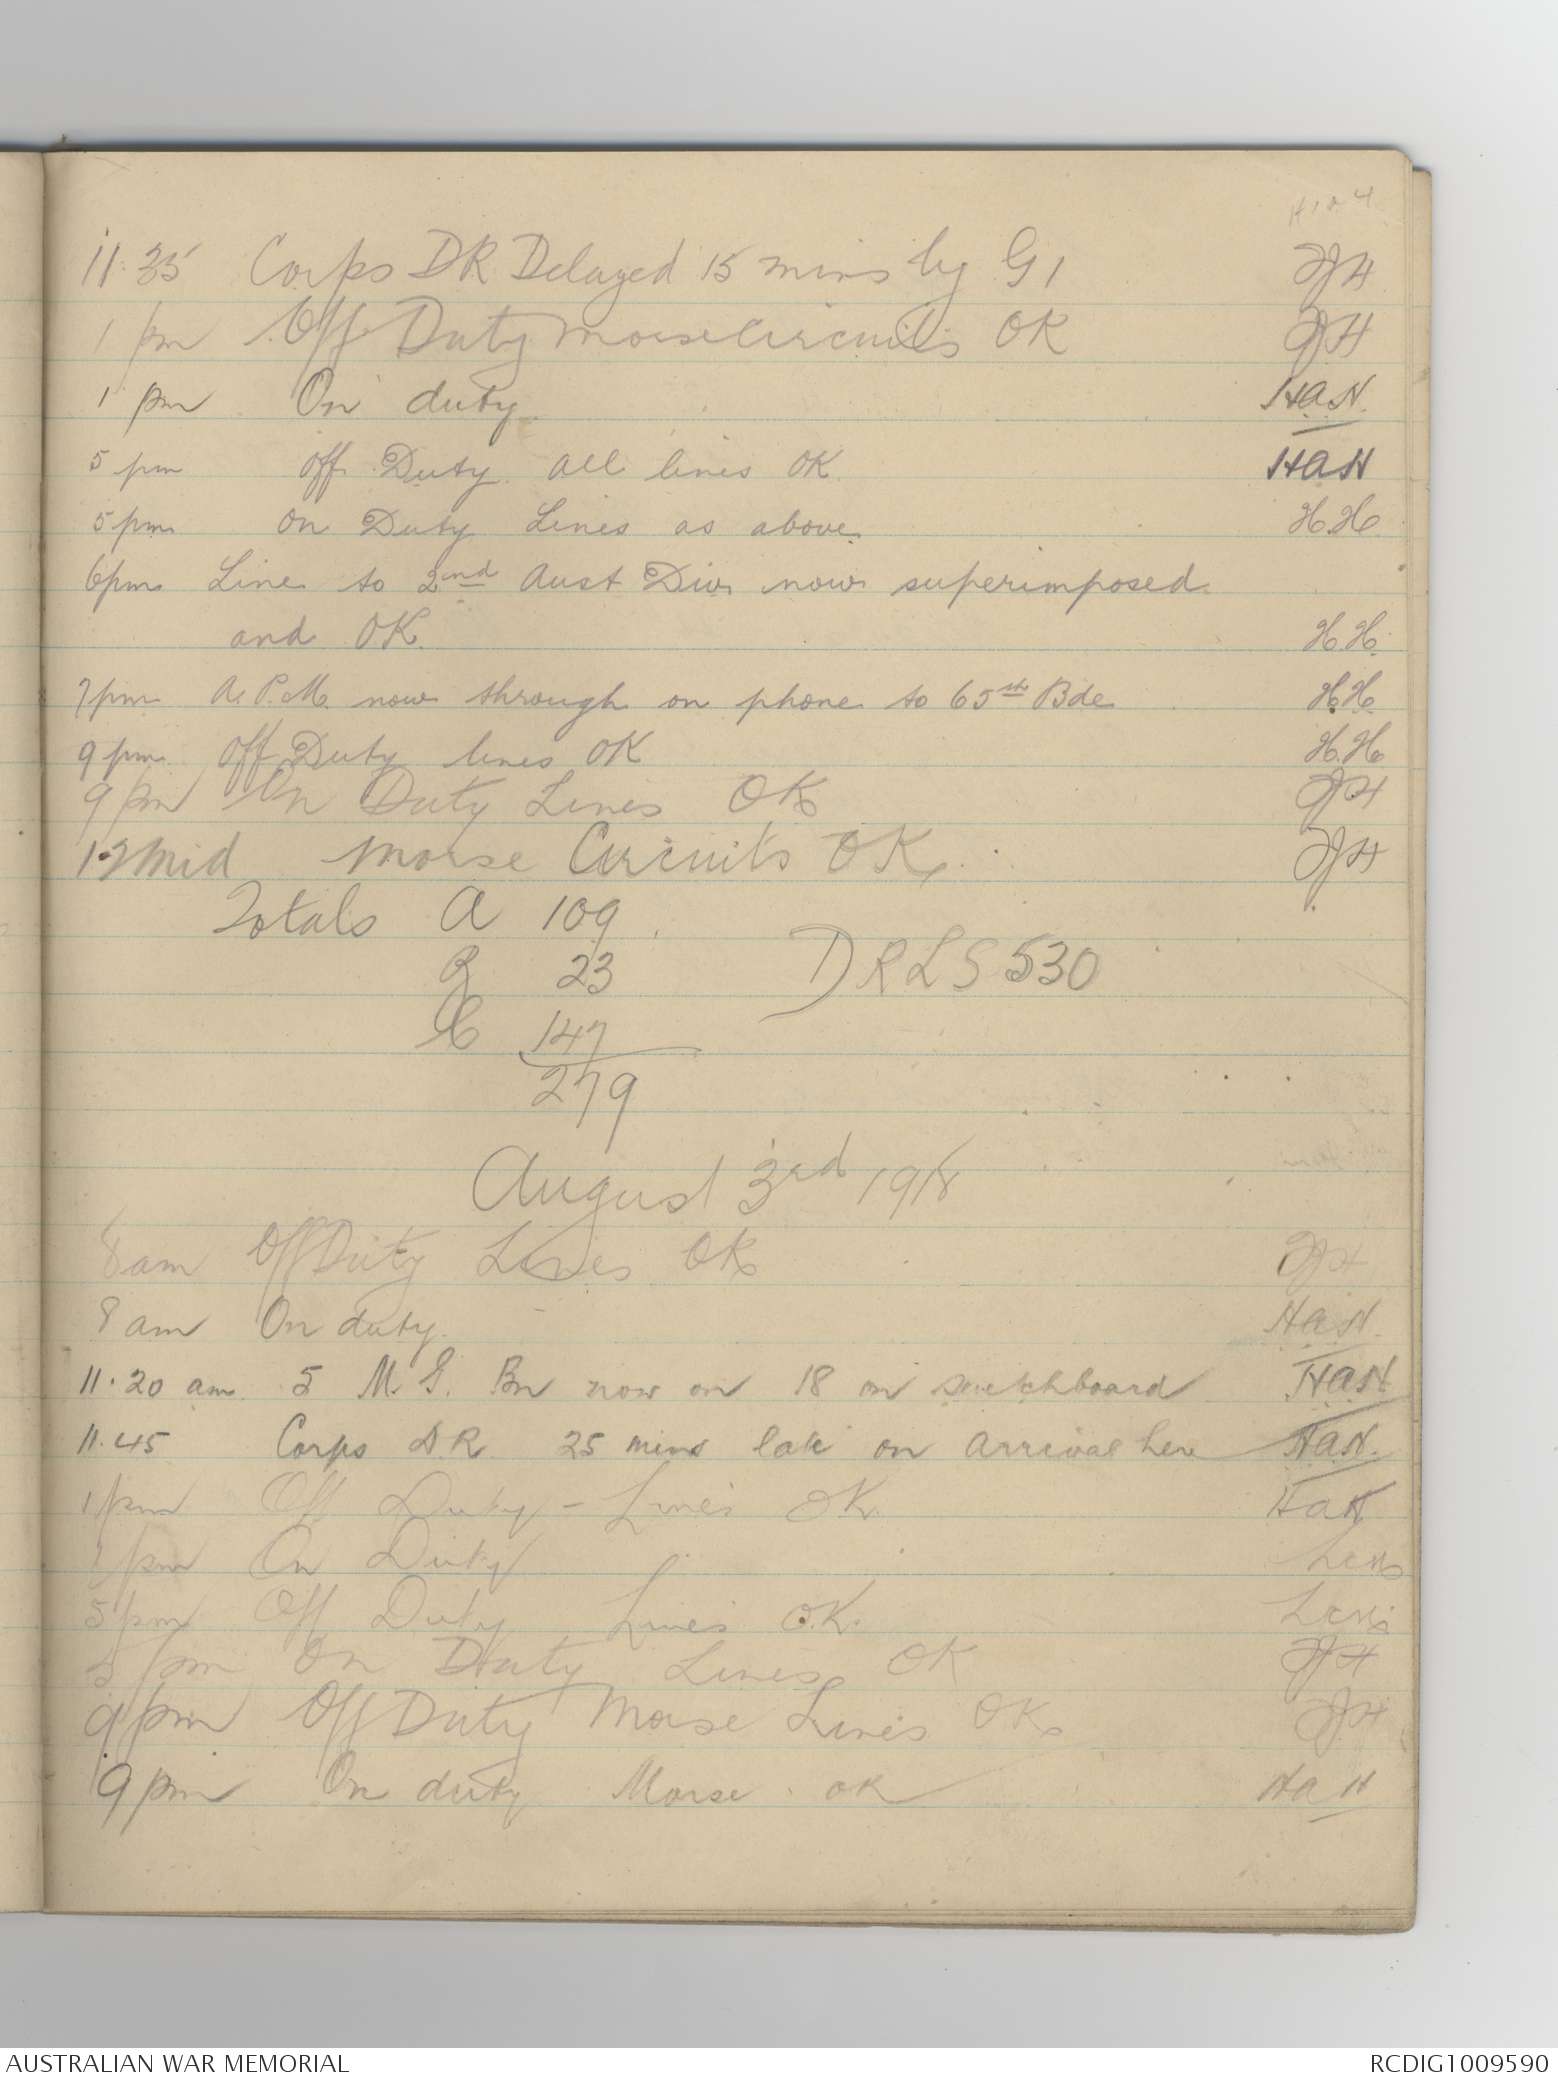 11.35 Corps DR Delayed 15 mins by G1
1 pm Off Duty morse circuits OK
1 pm On duty HaN
5 pm Off Duty all lines OK HaN
5 pm On Duty Lines as above H.H.
6pm Line to 2nd Aust Div now superimposed
and OK H.H.
7pm A.P.M. now through on phone to 65th Bde H.H.
9 pm Off Duty lines OK H.H.
9 pm On Duty Lines OK
12 mid morse Circuits OK
Totals A 109
B 23
C 147
DRLS 530
279
August 3rd 1918
8 am Off Duty Lines OK
8 am On duty. HaN.
11.20 am 5 M.G. Bn now on 18 on switchboard HaN
11.45 Corps D.R. 25 mins late on arrival here HaN.
1 pm Off Duty - Lines OK. HaN
1 pm On Duty
5 pm Off Duty Lines O.K.
5 pm On Duty Lines OK
9 pm Off Duty Morse Lines OK
9 pm On duty Morse OK HaN
AUSTRALIAN WAR MEMORIAL
RCDIG1009590